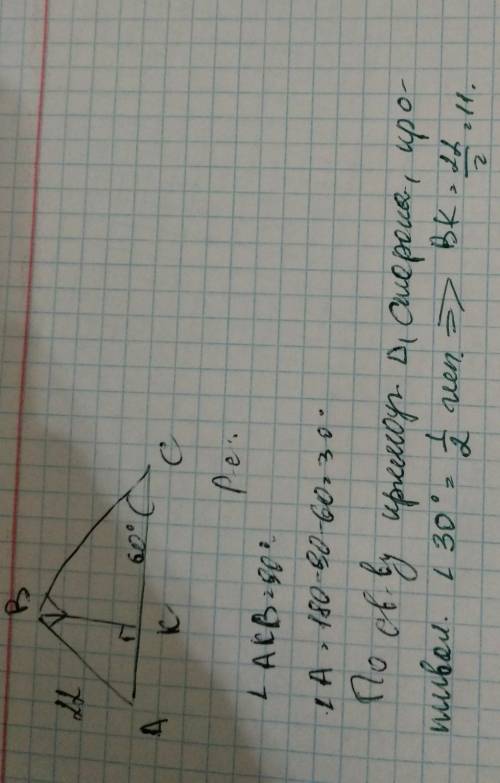 B
22
A
K
60°
C
Р-е:
∠AKB=90°.
∠A=180-90-60=30°
По св-ву прямоуг. Δ, сторона, про-
тивол. ∠30°=1/2 гип. => BK=22/2=11.